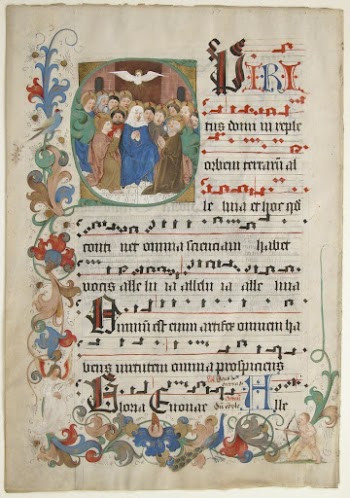 SPIRI
tus domi ni reple
orbem terrarū al
le luia et hoc qđ
conti net omnia scienciam habet
vocis alle lu ia allelu ia alle luia
Omniū est enim artifex omnem ha
bens virtutem omnia prospiciens
Gloria Euouae Alle